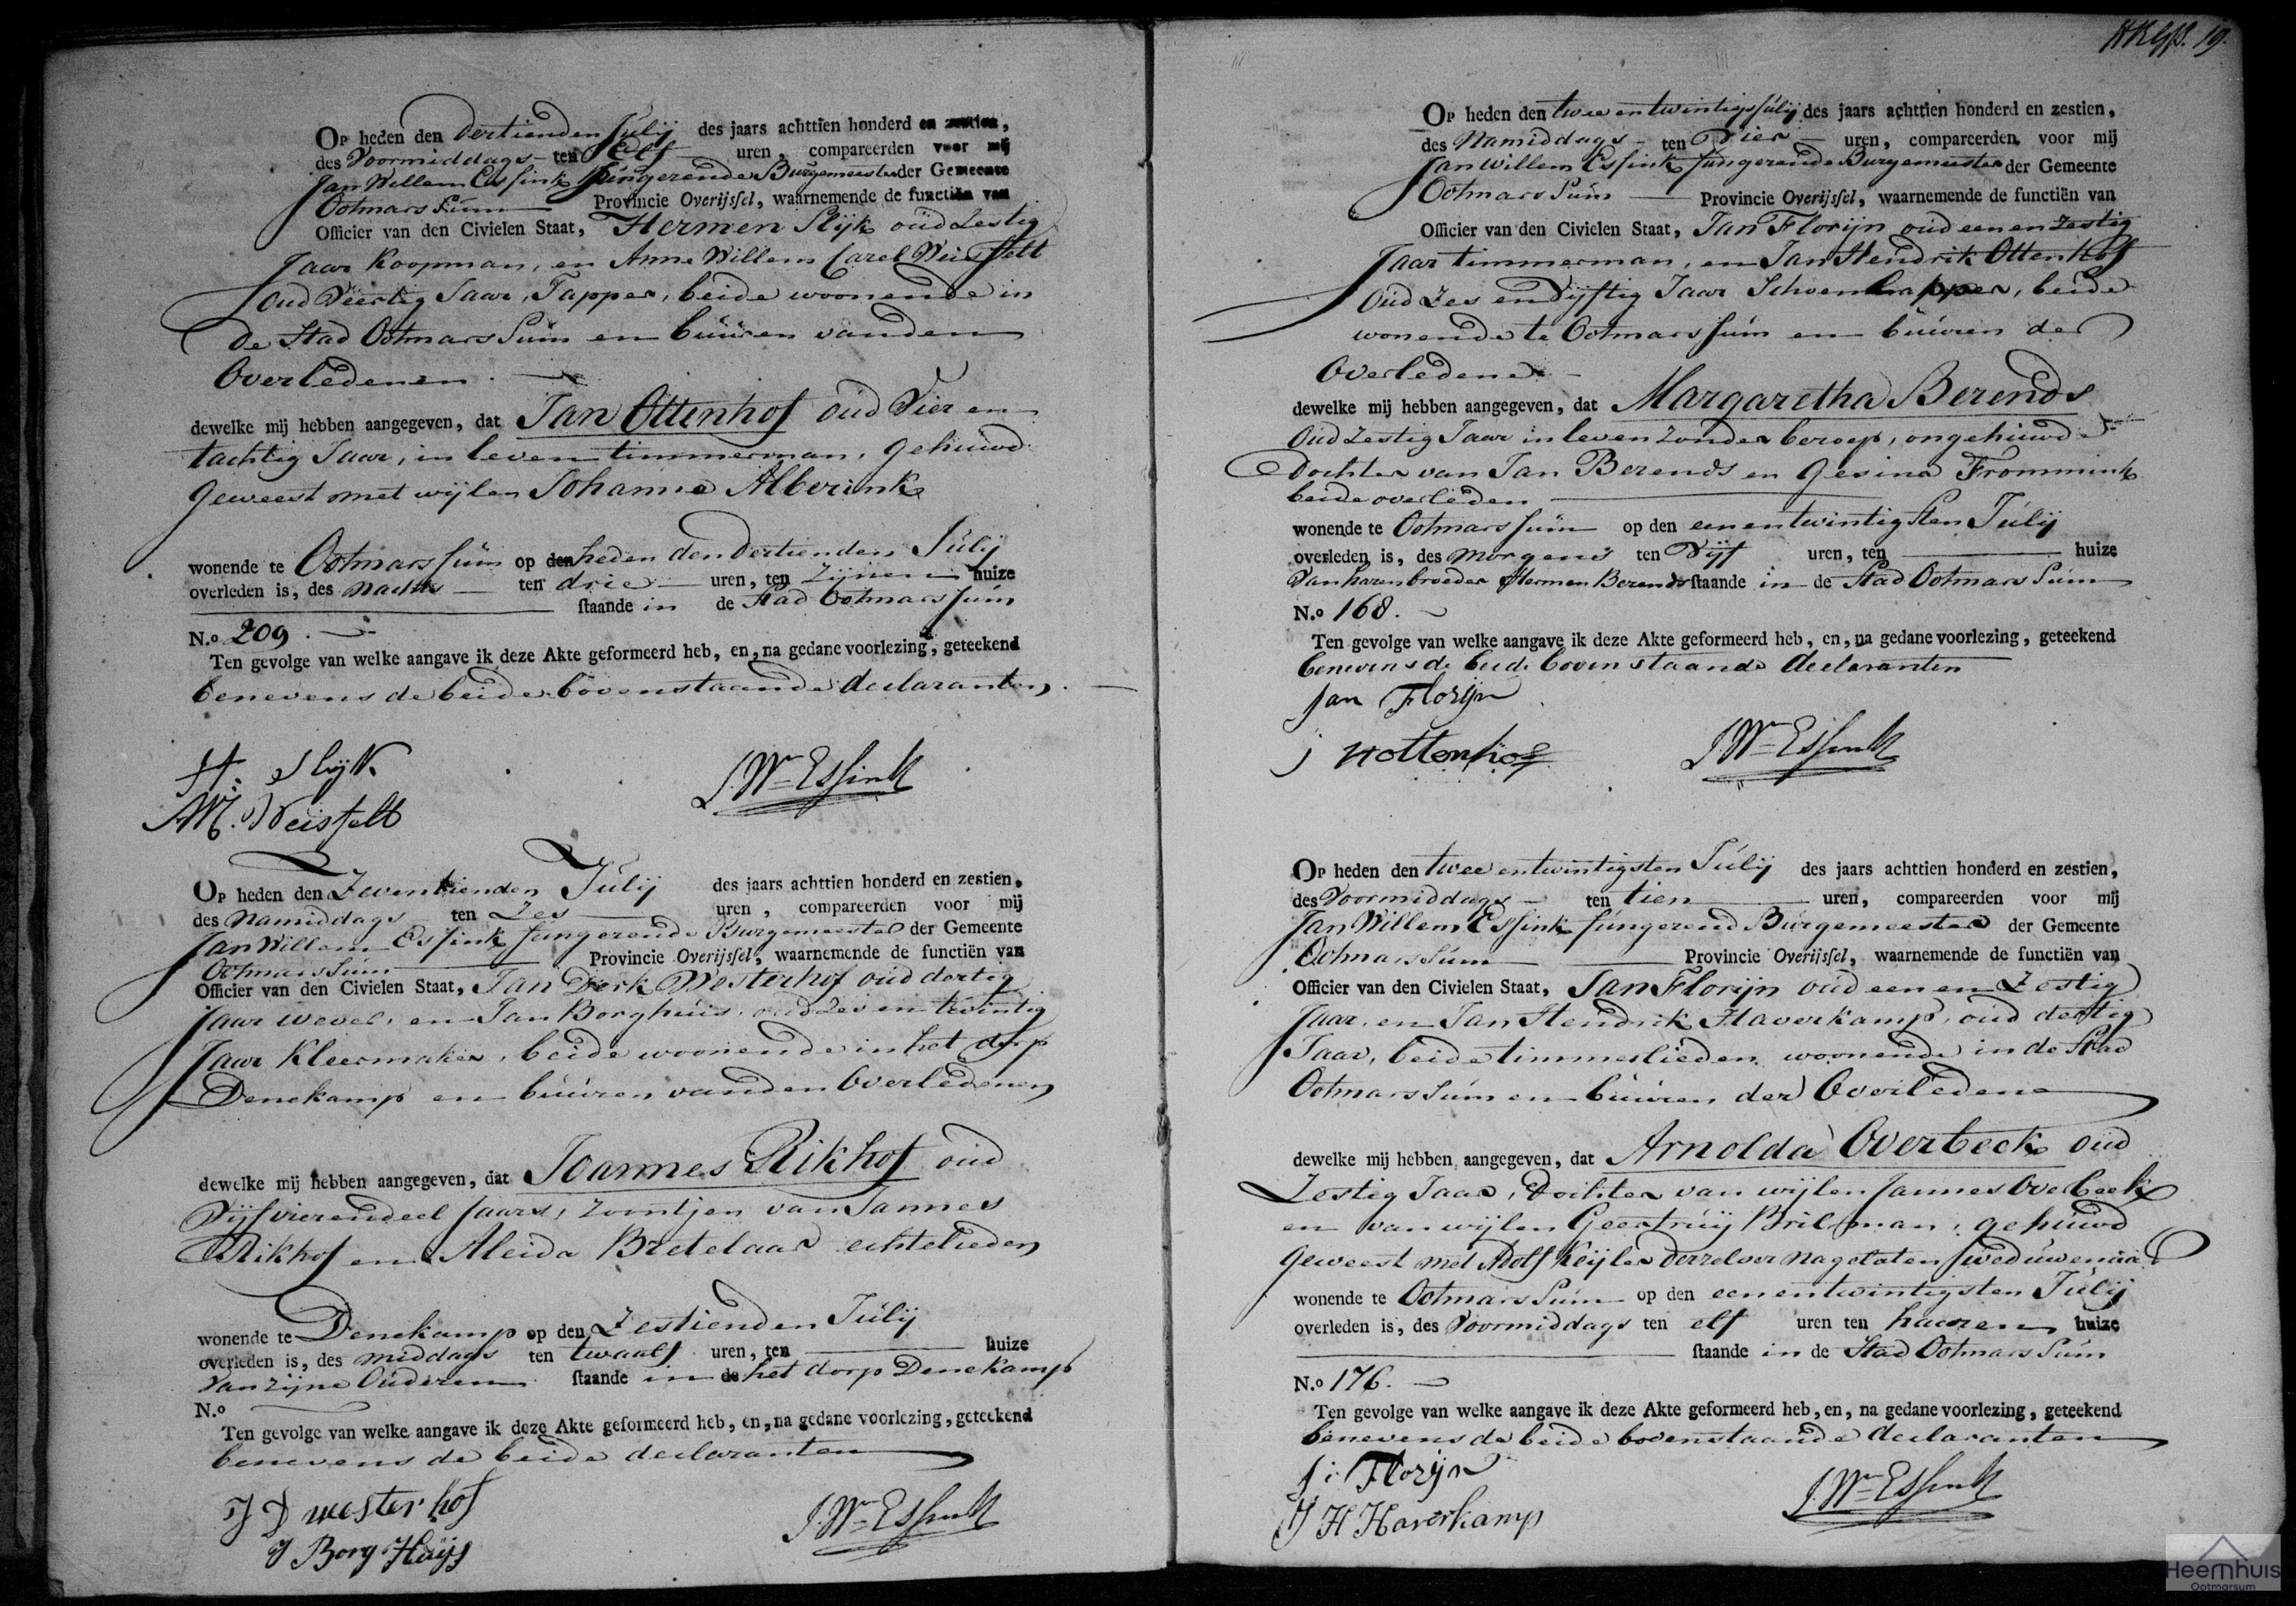 Op heden den dertienden Julij des jaars achttien honderd en zestien,
des Voormiddags ten Elf uren, compareerden voor mij
Jan Willem Essink fungerende Burgemeester der Gemeente
Ootmarssum Provincie Overijssel, waarnemende de functiën van
Officier van den Civielen Staat, Hermen Slijk oud zestig
Jaar Koopman, en Anne Willem Carel Weisfelt
Oud Veertig Jaar, Tapper, beide woonende in
de Stad Ootmarssum en buuren van den
Overledenen.
dewelke mij hebben aangegeven, dat Jan Ottenhof oud Vier en
tachtig Jaar, in leven timmerman, gehuwd
geweest met wijlen Johanna Alberink
wonende te Ootmarssum op den heden den dertienden Julij
overleden is, des Nachts ten drie uren, ten zijnen huize
staande in de Stad Ootmarssum
N.o 209.
Ten gevolge van welke aangave ik deze Akte geformeerd heb, en, na gedane voorlezing, geteekend
benevens de beide bovenstaande declaranten.
H. Slijk
Weisfelt
J. Wm Essink
Op heden den Zeventienden Julij des jaars achttien honderd en zestien,
des Namiddags ten Zes uren, compareerden voor mij
Jan Willem Essink fungerende Burgemeester der Gemeente
Ootmarssum Provincie Overijssel, waarnemende de functiën van
Officier van den Civielen Staat, Jan Derk Westerhof oud dertig
jaar wever, en Jan Borghuis, oud Zes en twintig
Jaar Kleermaker, beide woonende in het dorp
Denekamp en buuren van den Overledenen
dewelke mij hebben aangegeven, dat Joannes Rikhof oud
Vijf vierendeel Jaars, Zoontjen van Jannes
Rikhof en Aleida Bretelaar echtelieden
wonende te Denekamp op den Zestienden Julij
overleden is, des middags ten twaalf uren, ten huize
van zijne Ouderen staande in de het dorp Denekamp
N.o
Ten gevolge van welke aangave ik deze Akte geformeerd heb, en, na gedane voorlezing, geteekend
benevens de beide declaranten
J D westerhof
J Borg Huijs
J. Wm Essink
19.
Op heden den twee en twintigs Julij des jaars achttien honderd en zestien,
des Namiddags ten Vier uren, compareerden voor mij
Jan Willem Essink fungerende Burgemeester der Gemeente
Ootmarssum Provincie Overijssel, waarnemende de functiën van
Officier van den Civielen Staat, Jan Florijn oud een en zestig
Jaar timmerman, en Jan Hendrik Ottenhof
Oud Zes en Vijftig Jaar Schoenlapper, beide
wonende te Ootmarssum en buuren der
Overledene
dewelke mij hebben aangegeven, dat Margaretha Berends
Oud Zestig Jaar in leven zonder beroep, ongehuwde
Dochter van Jan Berends en Gesina Frommink
beide overleden
wonende te Ootmarssum op den een en twintigsten Julij
overleden is, des morgens ten Vijf uren, ten huize
van haren broeder Hermen Berends staande in de Stad Ootmarssum
N.o 168.
Ten gevolge van welke aangave ik deze Akte geformeerd heb, en, na gedane voorlezing, geteekend
benevens de beide bovenstaande declaranten
Jan Florijn
J Hottenhof
J. Wm Essink
Op heden den twee en twintigsten Julij des jaars achttien honderd en zestien,
des Voormiddags ten tien uren, compareerden voor mij
Jan Willem Essink fungerend Burgemeester der Gemeente
Ootmarssum Provincie Overijssel, waarnemende de functiën van
Officier van den Civielen Staat, Jan Florijn oud een en Zestig
Jaar, en Jan Hendrik Haverkamp, oud dertig
Jaar, beide timmerlieden woonende in de Stad
Ootmarssum en buuren der Overledene
dewelke mij hebben aangegeven, dat Arnolda Overbeek oud
Zestig Jaar, Dochter van wijlen Jannes Overbeek
en van wijlen Geertruij Brilman, gehuwd
geweest met Adolf Keijler derzelver nagelaten weduwenaar
wonende te Ootmarssum op den een en twintigsten Julij
overleden is, des Voormiddags ten elf uren ten haaren huize
staande in de Stad Ootmarssum
N.o 176.
Ten gevolge van welke aangave ik deze Akte geformeerd heb, en, na gedane voorlezing, geteekend
benevens de beide bovenstaande declaranten
J: Florijn
J H Haverkamp
J. Wm Essink
Heemhuis
Ootmarsum